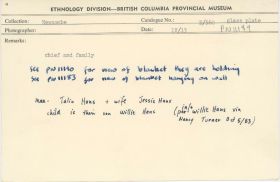 ETHNOLOGY DIVISION—BRITISH COLUMBIA PROVINCIAL MUSEUM
Collection Newcombe Catalogue No.: glass plate
Photographer: Date: PN11184
Remarks:
chief and family
see PN11180 for view of blanket they are holding
see PN11183 for view of blanket hanging on wall
man - Hans + wife Jessie Hans
child is their son Willie Hans (info per Willie Hans via
Nancy Turner Oct 5/83)